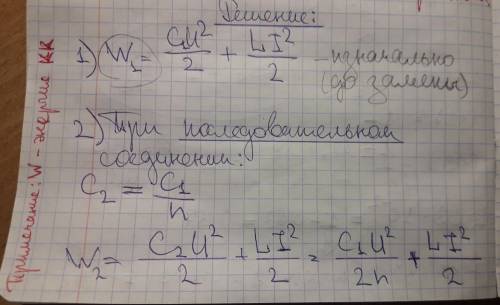 Решение:
1) W₁ = CU²/2 + LI²/2 – изначально
(до замены)
2) При последовательном
соединении:
C₂ = C₁/n
W₂ = C₂U²/2 + LI²/2 = C₁U²/2n + LI²/2
Примечание: W - энергия КК